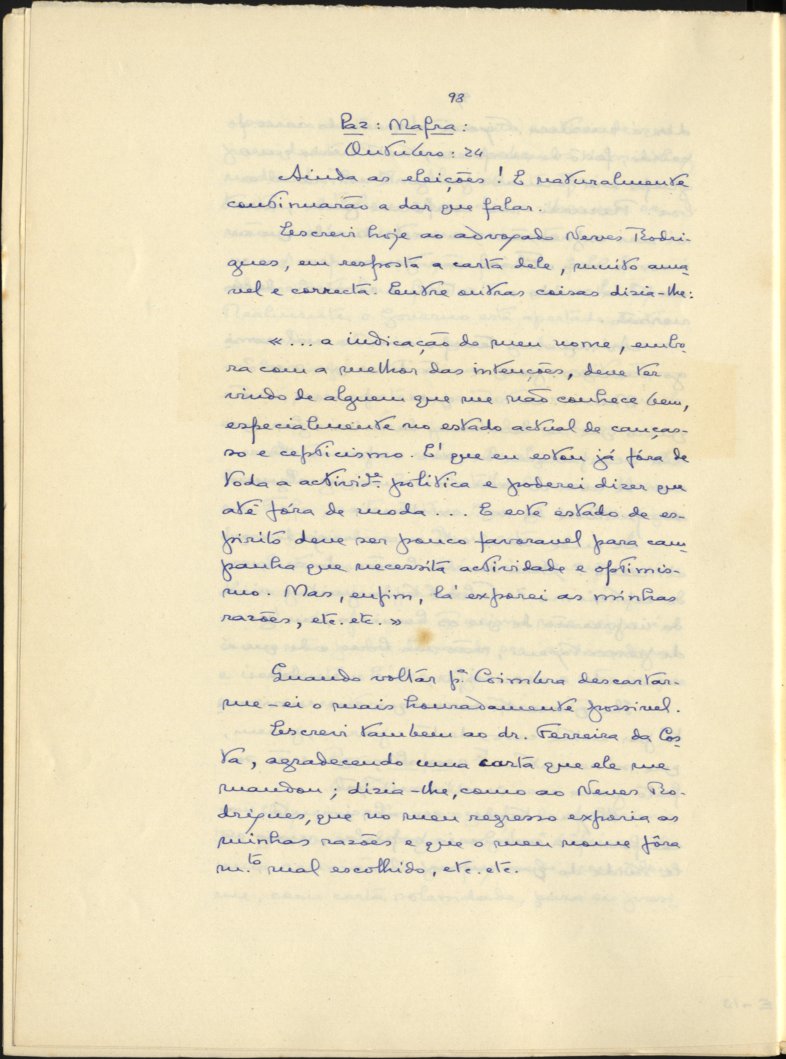 93
Paz: Mafra:
Outubro: 24
Ainda as eleições! E naturalmente
continuarão a dar que falar.
Escrevi hoje ao advogado Neves Rodri-
gues, em resposta a carta dele, muito ama-
vel e correcta. Entre outras coisas dizia-lhe:
«... a indicação do meu nome, embo-
ra com a melhor das intenções, deve ter
vindo de alguem que me não conhece bem,
especialmente no estado actual de cançás-
so e cepticismo. E' que eu estou já fóra de
toda a activid.e politica e poderei dizer que
até fóra de moda... E este estado de es-
pirito deve ser pouco favoravel para cam-
panha que necessita actividade e optimis-
mo. Mas, enfim, lá exporei as minhas
razões, etc. etc.»
Quando voltar p.a Coimbra descartar-
me-ei o mais honradamente possivel.
Escrevi tambem ao dr. Ferreira da Cos-
ta, agradecendo uma carta que ele me
mandou; dizia-lhe, como ao Neves Ro-
drigues, que no meu regresso exporia as
minhas razões e que o meu nome fôra
m.to mal escolhido, etc. etc.